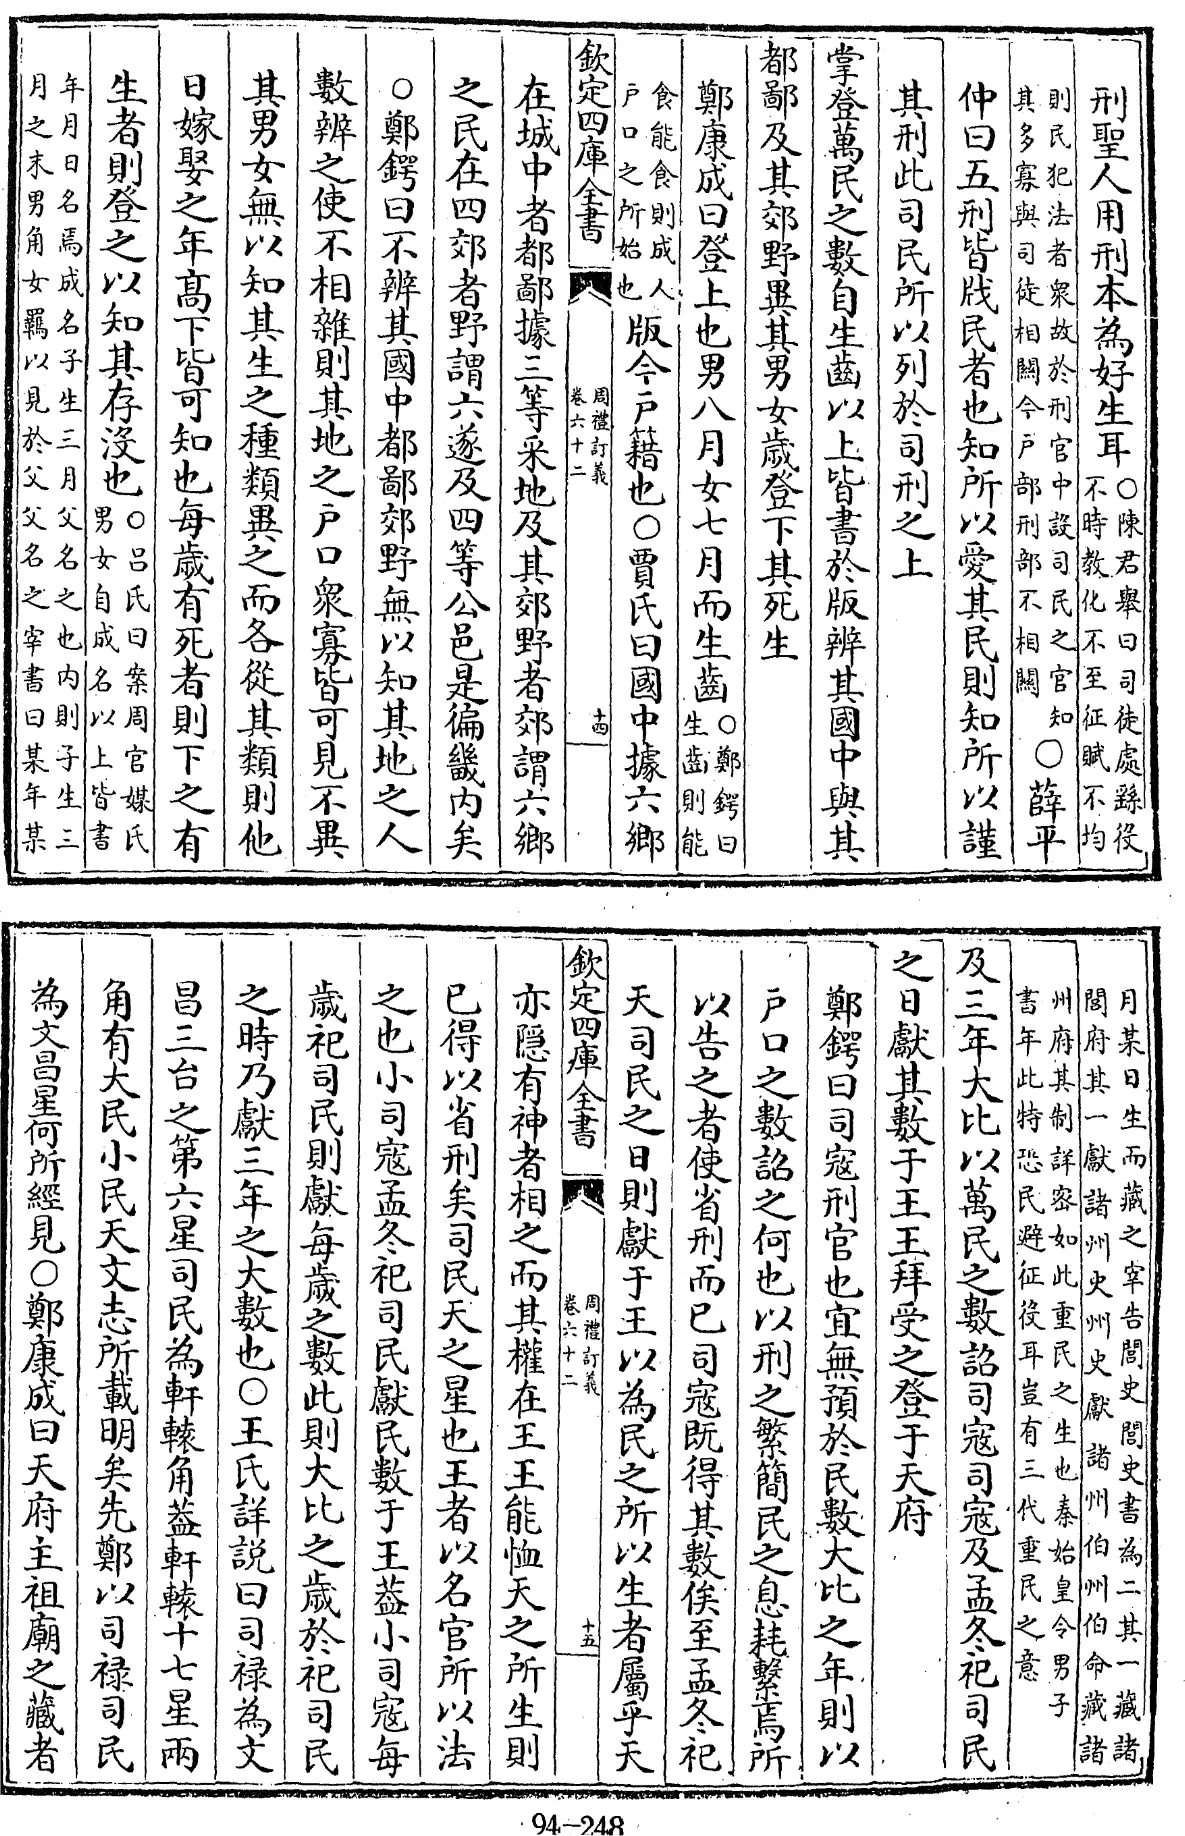 刑聖人用刑本為好生耳〇陳君舉曰司徒處繇役
不時教化不至征賦不均
則民犯法者衆故於刑官中設司民之官知
其多寡與司徒相關今户部刑部不相關〇薛平
仲曰五刑皆戕民者也知所以愛其民則知所以謹
其刑此司民所以列於司刑之上
掌登萬民之數自生齒以上皆書於版辨其國中與其
都鄙及其郊野異其男女歲登下其死生
鄭康成曰登上也男八月女七月而生齒〇鄭鍔曰
生齒則能
食能食則成人
户口之所始也版今户籍也〇賈氏曰國中據六鄉
欽定四庫全書
周禮訂義
卷六十二
十四
在城中者都鄙據三等采地及其郊野者郊謂六鄉
之民在四郊者野謂六遂及四等公邑是徧畿内矣
〇鄭鍔曰不辨其國中都鄙郊野無以知其地之人
數辨之使不相雜則其地之户口衆寡皆可見不異
其男女無以知其生之種類異之而各從其類則他
日嫁娶之年髙下皆可知也每歲有死者則下之有
生者則登之以知其存沒也〇吕氏曰案周官媒氏
男女自成名以上皆書
年月日名焉成名子生三月父名之也内則子生三
月之末男角女羈以見於父父名之宰書曰某年某
月某日生而藏之宰告閭史閭史書為二其一藏諸
閭府其一獻諸州史州史獻諸州伯州伯命藏諸
州府其制詳密如此重民之生也秦始皇令男子
書年此特恐民避征役耳豈有三代重民之意
及三年大比以萬民之數詔司寇司寇及孟冬祀司民
之日獻其數于王王拜受之登于天府
鄭鍔曰司寇刑官也宜無預於民數大比之年則以
户口之數詔之何也以刑之繁簡民之息耗繫焉所
以告之者使省刑而已司寇既得其數俟至孟冬祀
天司民之日則獻于王以為民之所以生者屬乎天
欽定四庫全書
周禮訂義
卷六十二
十五
亦隠有神者相之而其權在王王能恤天之所生則
已得以省刑矣司民天之星也王者以名官所以法
之也小司寇孟冬祀司民獻民數于王葢小司寇每
歲祀司民則獻每歲之數此則大比之歲於祀司民
之時乃獻三年之大數也〇王氏詳説曰司禄為文
昌三台之第六星司民為軒轅角葢軒轅十七星兩
角有大民小民天文志所載明矣先鄭以司禄司民
為文昌星何所經見〇鄭康成曰天府主祖廟之藏者
94-248